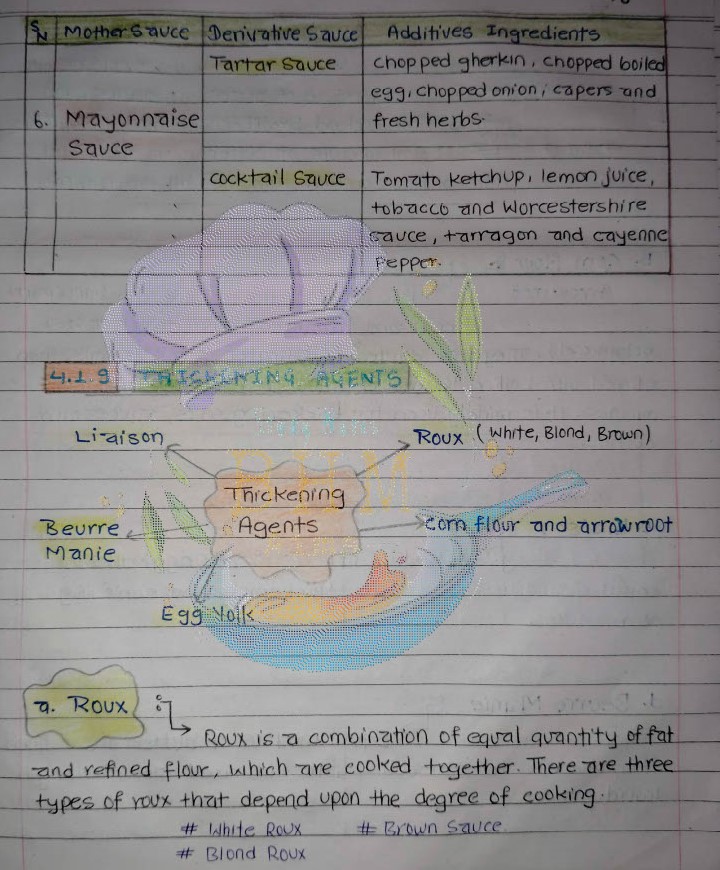 SN Mother Sauce Derivative Sauce Additives Ingredients
Tartar Sauce chopped gherkin, chopped boiled
egg, chopped onion, capers and
6. Mayonnaise fresh herbs.
Sauce
cocktail Sauce Tomato ketchup, lemon juice,
tobacco and Worcestershire
sauce, tarragon and cayenne
Pepper.
4.1.9 THICKINING AGENTS
Liaison Roux (White, Blond, Brown)
BHM
Thickening
Agents
Beurre corn flour and arrowroot
Manie
Egg Yolk
a. Roux :
Roux is a combination of equal quantity of fat
and refined flour, which are cooked together. There are three
types of roux that depend upon the degree of cooking.
# White Roux # Brown Sauce
# Blond Roux